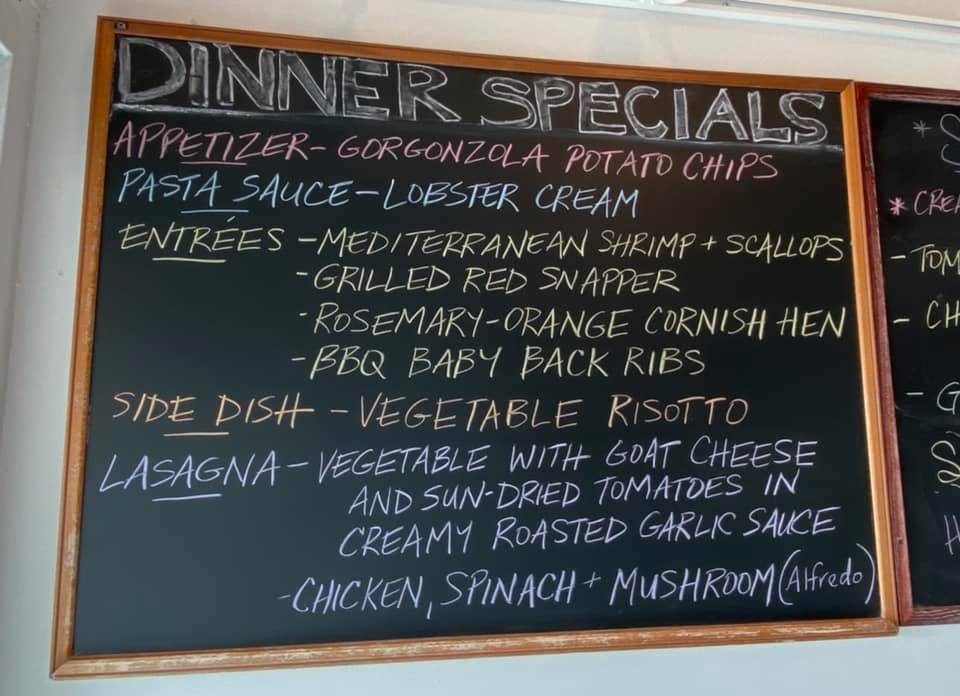 DINNER SPECIALS
APPETIZER - GORGONZOLA POTATO CHIPS
PASTA SAUCE - LOBSTER CREAM
ENTRÉES - MEDITERRANEAN SHRIMP + SCALLOPS
- GRILLED RED SNAPPER
- ROSEMARY-ORANGE CORNISH HEN
- BBQ BABY BACK RIBS
SIDE DISH - VEGETABLE RISOTTO
LASAGNA - VEGETABLE WITH GOAT CHEESE
AND SUN-DRIED TOMATOES IN
CREAMY ROASTED GARLIC SAUCE
- CHICKEN, SPINACH + MUSHROOM (Alfredo)